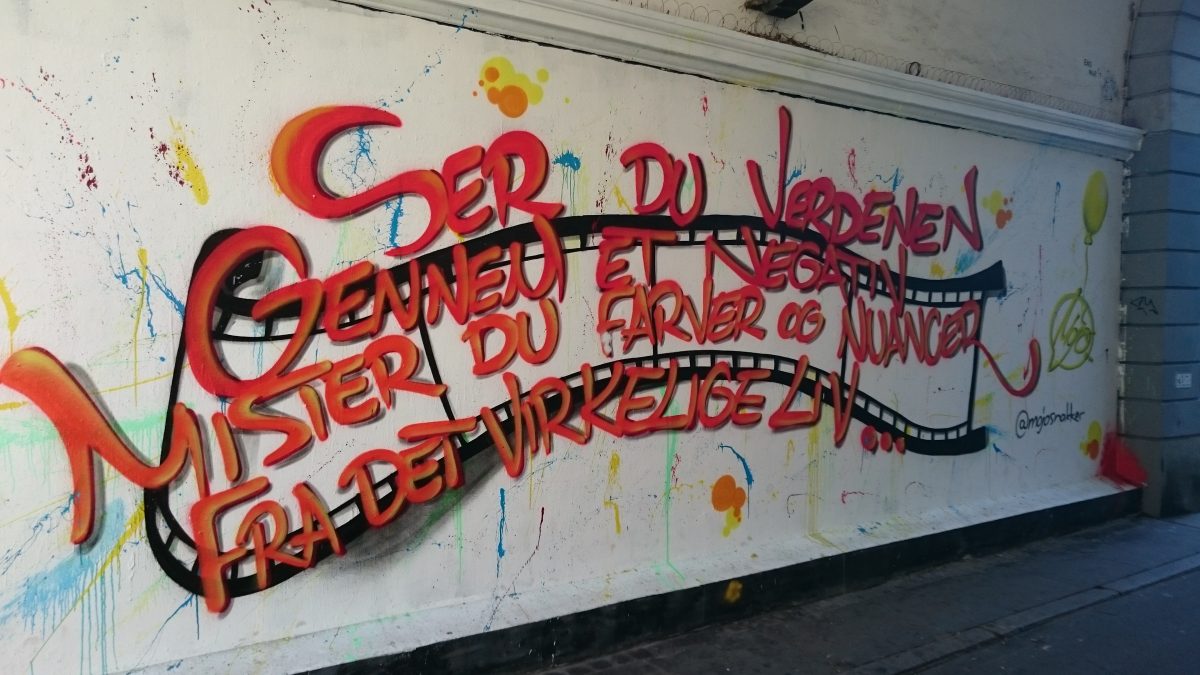 SER DU VERDENEN
GENNEM ET NEGATIV
MISTER DU FARVER OG NUANCER
FRA DET VIRKELIGE LIV...
Mojo
@mojosnakker